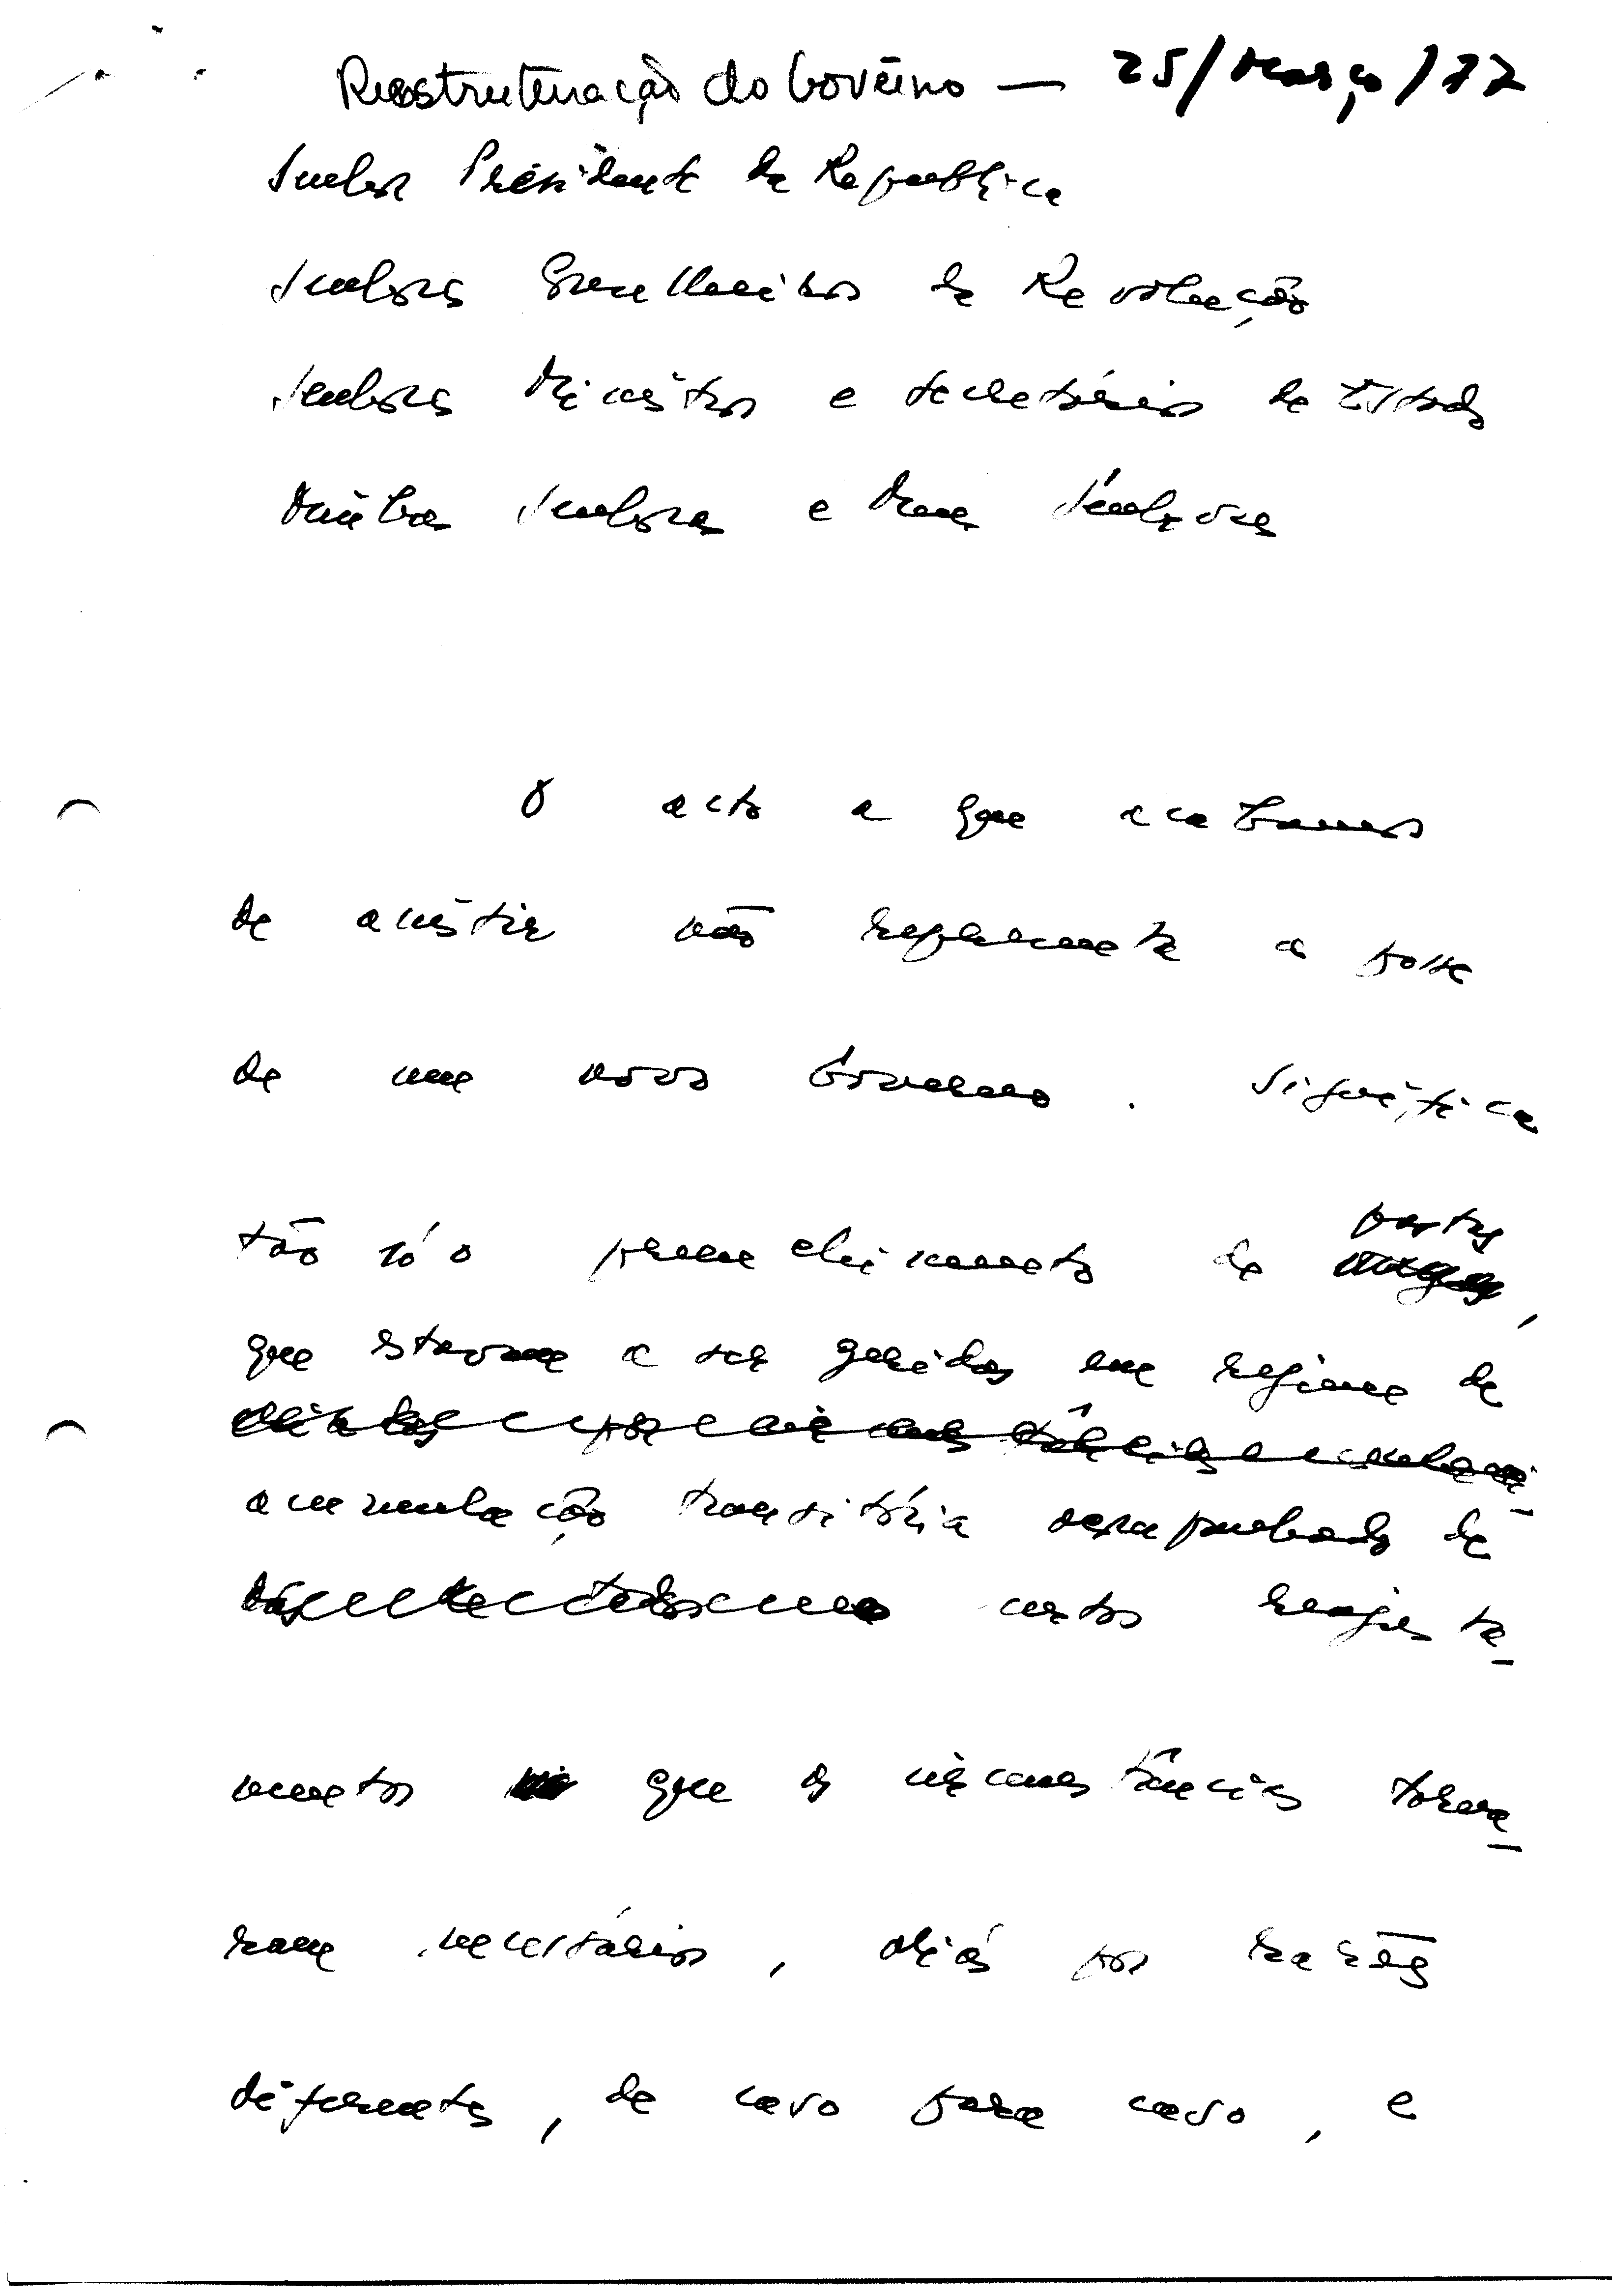 Reestruturação do Govêrno — 25/Março/77
Senhor Presidente da República
Senhores Conselheiros da Revolução
Senhores Ministros e Secretários de Estado
Minhas Senhoras e Meus Senhores
O acto a que acabamos
de assistir não representa a posse
de um novo Governo. Significa
tão só o preenchimento de postos
,
que estavam a ser geridos em regime de
acumulação transitória acompanhado de
certos reajusta-
mentos que as circunstâncias torna-
ram necessários, aliás por razões
diferentes, de caso para caso, e